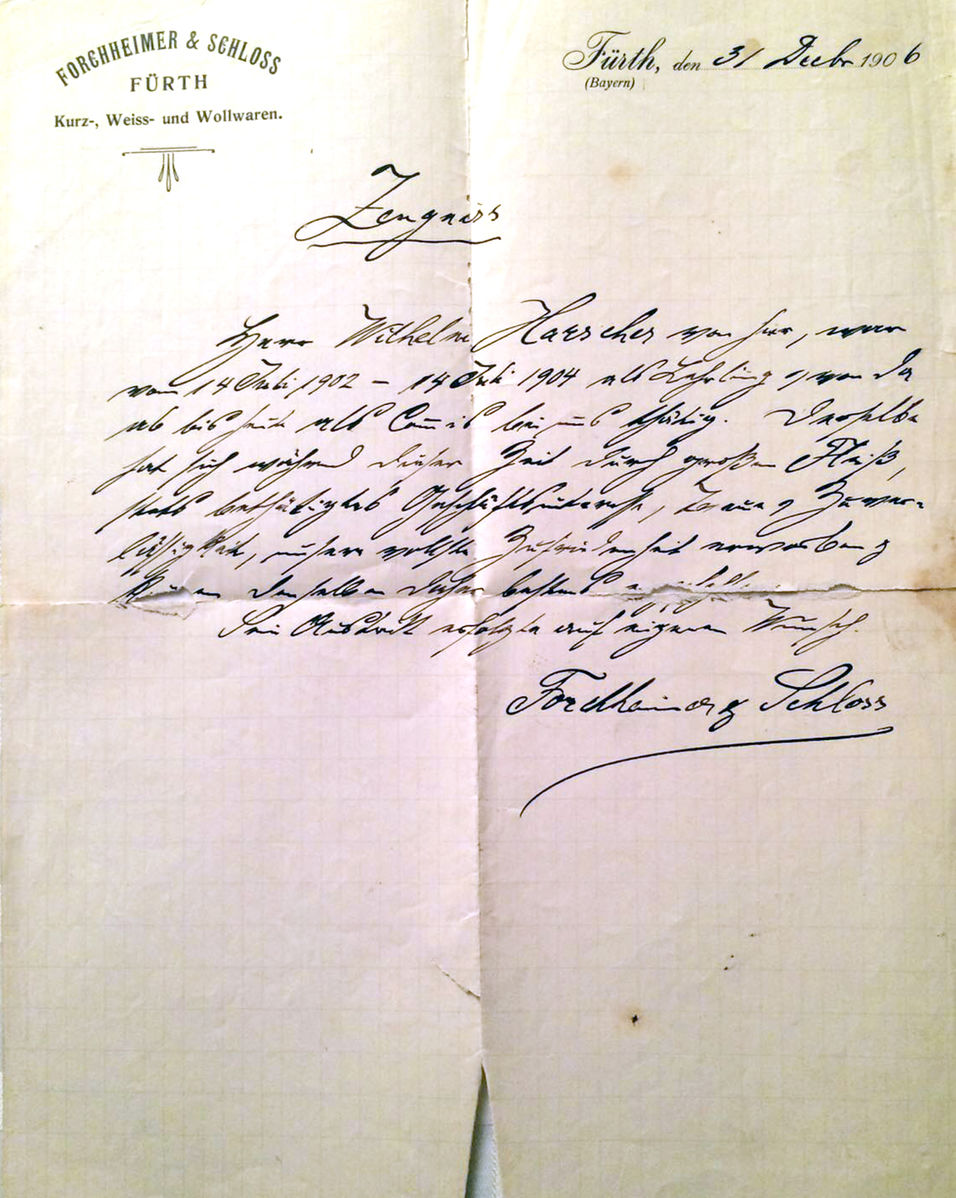 FORCHHEIMER & SCHLOSS
FÜRTH
Kurz-, Weiss- und Wollwaren.
Fürth, den 31 Decbr 1906
(Bayern)
Zeugniss
Herr Wilhelm Harscher von hier, war
vom 14 Juli 1902 – 14 Juli 1904 als Lehrling & von da
ab bis heute als Commis bei uns thätig. Derselbe
hat sich während dieser Zeit durch großen Fleiß,
stets bethätigtes Geschäftsinteresse, Treue & Zuver-
läßigkeit, unsere vollste Zufriedenheit erworben &
können denselben daher bestens empfehlen.
Sein Austritt erfolgte auf eigenen Wunsch.
Forchheimer & Schloss